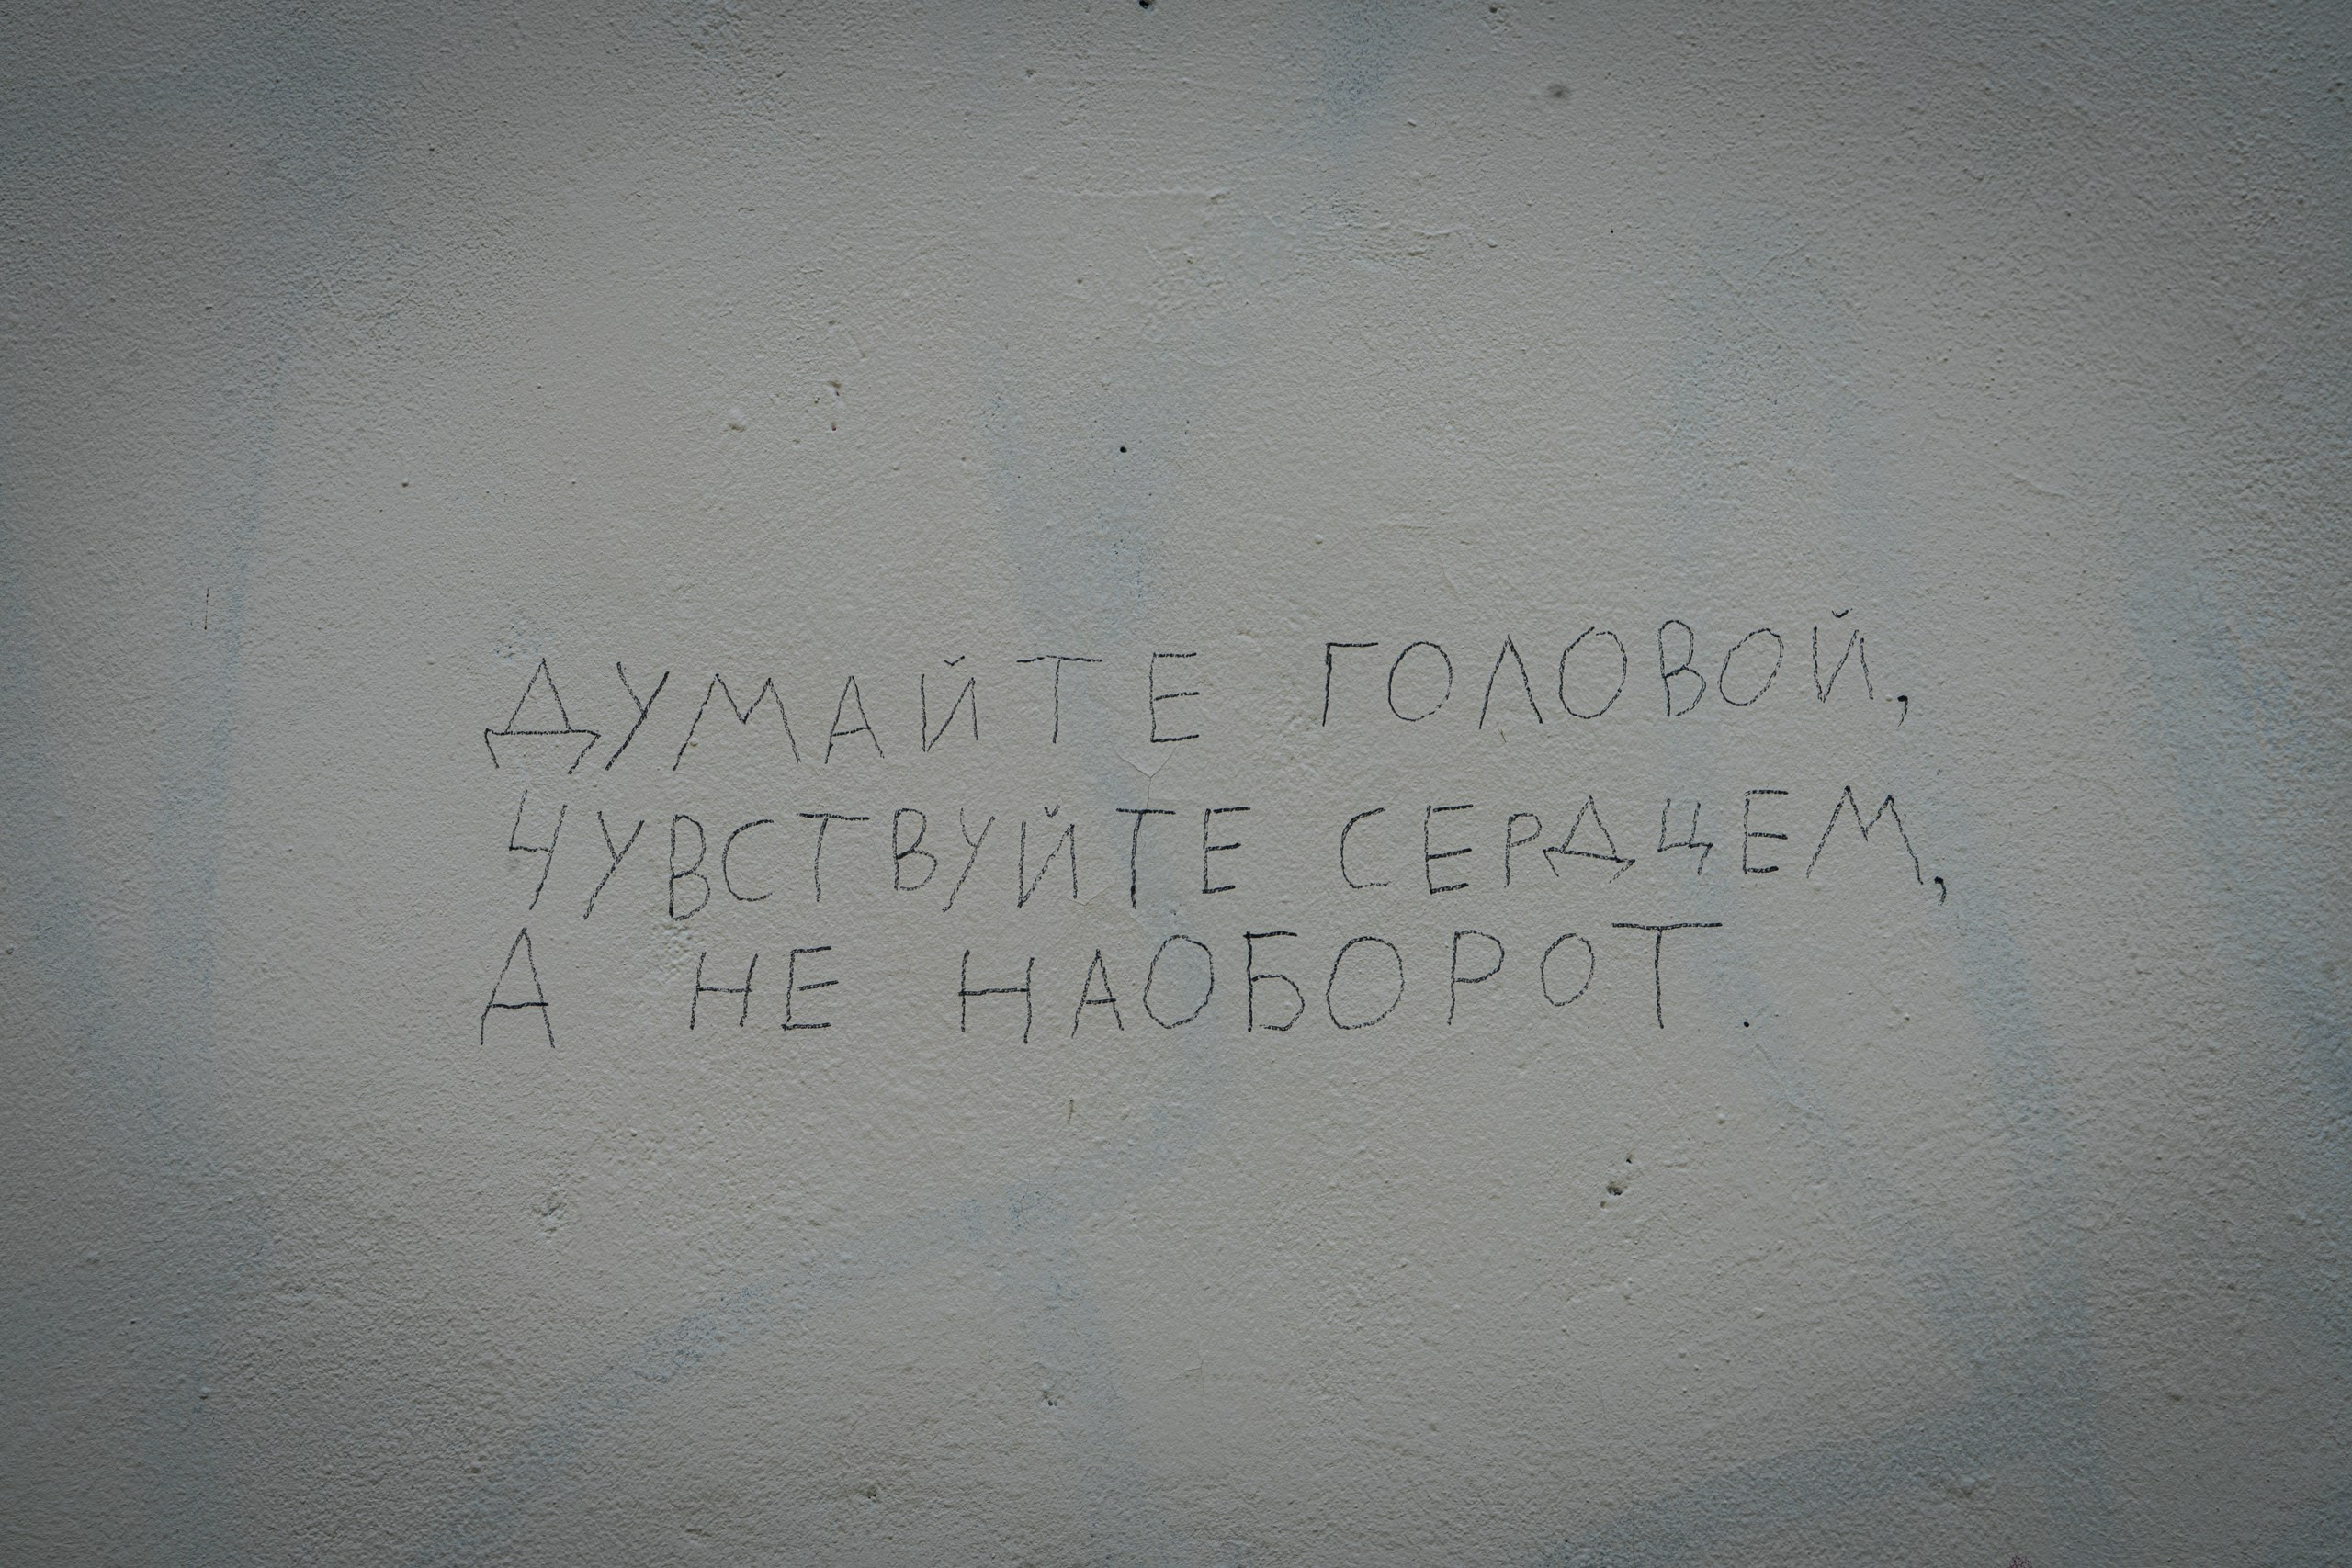 ДУМАЙТЕ ГОЛОВОЙ,
ЧУВСТВУЙТЕ СЕРДЦЕМ,
А НЕ НАОБОРОТ.